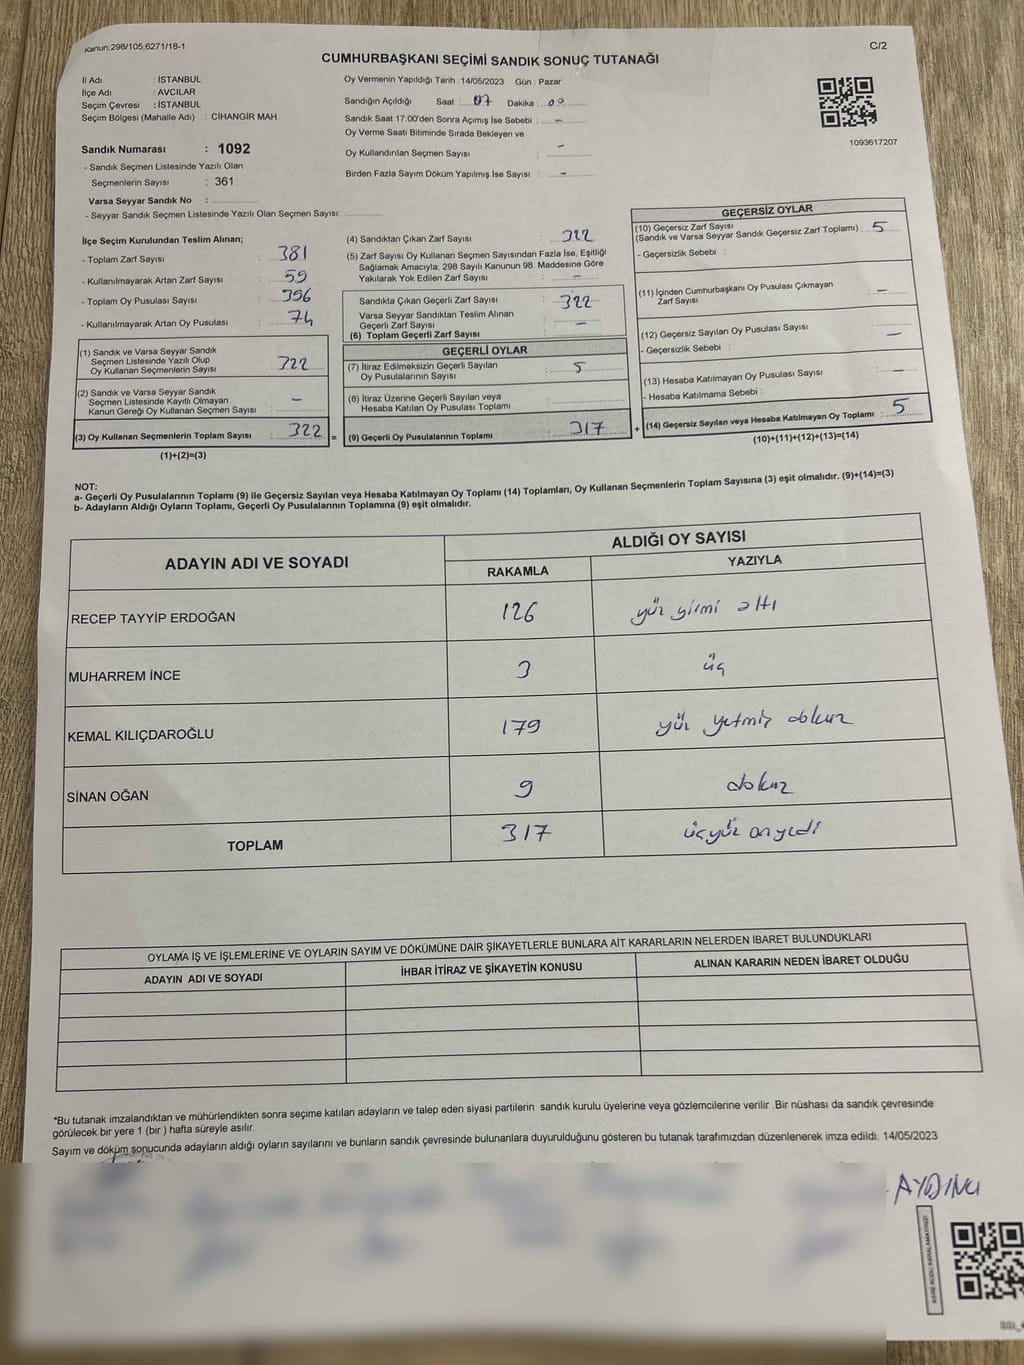 Kanun;298/105;6271/18-1
C/2
CUMHURBAŞKANI SEÇİMİ SANDIK SONUÇ TUTANAĞI
İl Adı : İSTANBUL
İlçe Adı : AVCILAR
Seçim Çevresi : İSTANBUL
Seçim Bölgesi (Mahalle Adı) : CİHANGİR MAH.
Sandık Numarası : 1092
- Sandık Seçmen Listesinde Yazılı Olan
Seçmenlerin Sayısı : 361
Varsa Seyyar Sandık No :
- Seyyar Sandık Seçmen Listesinde Yazılı Olan Seçmen Sayısı:
Oy Vermenin Yapıldığı Tarih :14/05/2023 Gün : Pazar
Sandığın Açıldığı Saat : 07 Dakika : 00
Sandık Saat 17:00'den Sonra Açımış İse Sebebi : –
Oy Verme Saati Bitiminde Sırada Bekleyen ve
Oy Kullandırılan Seçmen Sayısı : –
Birden Fazla Sayım Döküm Yapılmış İse Sayısı : –
1093617207
İlçe Seçim Kurulundan Teslim Alınan;
- Toplam Zarf Sayısı : 381
- Kullanılmayarak Artan Zarf Sayısı : 59
- Toplam Oy Pusulası Sayısı : 396
- Kullanılmayarak Artan Oy Pusulası : 74
(1) Sandık ve Varsa Seyyar Sandık
Seçmen Listesinde Yazılı Olup
Oy Kullanan Seçmenlerin Sayısı : 322
(2) Sandık ve Varsa Seyyar Sandık
Seçmen Listesinde Kayıtlı Olmayan
Kanun Gereği Oy Kullanan Seçmen Sayısı : –
(3) Oy Kullanan Seçmenlerin Toplam Sayısı : 322 =
(1)+(2)=(3)
(4) Sandıktan Çıkan Zarf Sayısı : 322
(5) Zarf Sayısı Oy Kullanan Seçmen Sayısından Fazla İse, Eşitliği
Sağlamak Amacıyla, 298 Sayılı Kanunun 98. Maddesine Göre
Yakılarak Yok Edilen Zarf Sayısı : –
Sandıkta Çıkan Geçerli Zarf Sayısı : 322
Varsa Seyyar Sandıktan Teslim Alınan
Geçerli Zarf Sayısı : –
(6) Toplam Geçerli Zarf Sayısı
GEÇERLİ OYLAR
(7) İtiraz Edilmeksizin Geçerli Sayılan
Oy Pusulalarının Sayısı : 5
(8) İtiraz Üzerine Geçerli Sayılan veya
Hesaba Katılan Oy Pusulası Toplamı :
(9) Geçerli Oy Pusulalarının Toplamı : 317 +
GEÇERSİZ OYLAR
(10) Geçersiz Zarf Sayısı
(Sandık ve Varsa Seyyar Sandık Geçersiz Zarf Toplamı) : 5
- Geçersizlik Sebebi :
(11) İçinden Cumhurbaşkanı Oy Pusulası Çıkmayan
Zarf Sayısı : –
(12) Geçersiz Sayılan Oy Pusulası Sayısı : –
- Geçersizlik Sebebi :
(13) Hesaba Katılmayan Oy Pusulası Sayısı : –
- Hesaba Katılmama Sebebi :
(14) Geçersiz Sayılan veya Hesaba Katılmayan Oy Toplamı : 5
(10)+(11)+(12)+(13)=(14)
NOT:
a- Geçerli Oy Pusulalarının Toplamı (9) ile Geçersiz Sayılan veya Hesaba Katılmayan Oy Toplamı (14) Toplamları, Oy Kullanan Seçmenlerin Toplam Sayısına (3) eşit olmalıdır. (9)+(14)=(3)
b- Adayların Aldığı Oyların Toplamı, Geçerli Oy Pusulalarının Toplamına (9) eşit olmalıdır.
ADAYIN ADI VE SOYADI
ALDIĞI OY SAYISI
RAKAMLA YAZIYLA
RECEP TAYYİP ERDOĞAN 126 yüz yirmi altı
MUHARREM İNCE 3 üç
KEMAL KILIÇDAROĞLU 179 yüz yetmiş dokuz
SİNAN OĞAN 9 dokuz
TOPLAM 317 üçyüz onyedi
OYLAMA İŞ VE İŞLEMLERİNE VE OYLARIN SAYIM VE DÖKÜMÜNE DAİR ŞİKAYETLERLE BUNLARA AİT KARARLARIN NELERDEN İBARET BULUNDUKLARI
ADAYIN ADI VE SOYADI İHBAR İTİRAZ VE ŞİKAYETİN KONUSU ALINAN KARARIN NEDEN İBARET OLDUĞU
*Bu tutanak imzalandıktan ve mühürlendikten sonra seçime katılan adayların ve talep eden siyasi partilerin sandık kurulu üyelerine veya gözlemcilerine verilir .Bir nüshası da sandık çevresinde
görülecek bir yere 1 (bir ) hafta süreyle asılır.
Sayım ve döküm sonucunda adayların aldığı oyların sayılarını ve bunların sandık çevresinde bulunanlara duyurulduğunu gösteren bu tutanak tarafımızdan düzenlenerek imza edildi. 14/05/2023
AYDINLI
KARE KODU KARALAMAYINIZ!